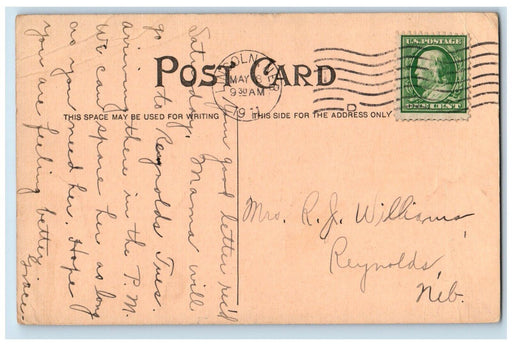 POST CARD
LINCOLN, NEB.
MAY
9 30 AM
1911
U.S. POSTAGE
D
THIS SPACE MAY BE USED FOR WRITING
THIS SIDE FOR THE ADDRESS ONLY
Your good letter rec'd
Saturday. Mama will
go to Reynolds Tues.
arriving there in the P.M.
We can spare her as long
as you need her. Hope
you are feeling better
Grace.
Mrs. R. J. Williams,
Reynolds,
Neb.